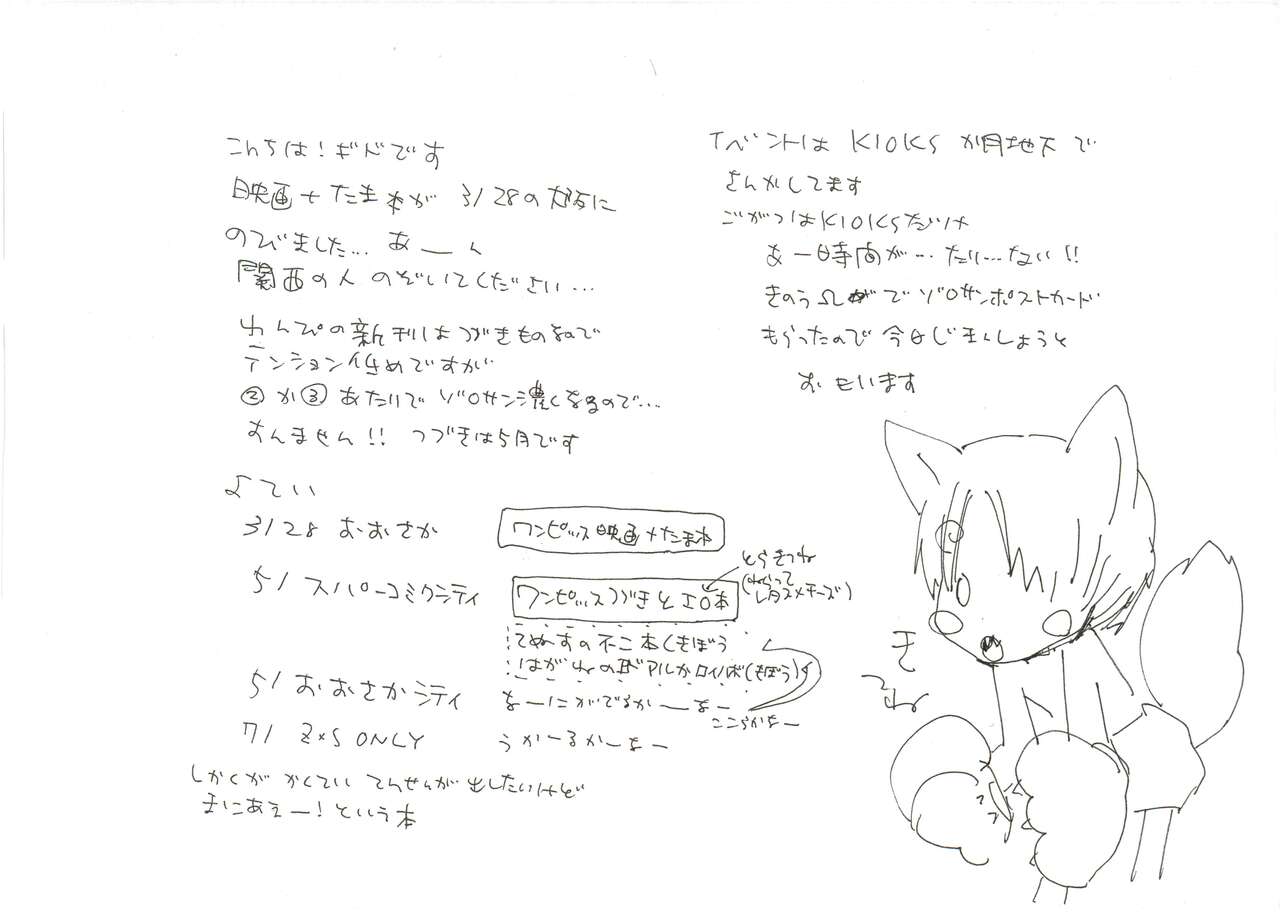 こんちは！ギドです
映画+たま本が 3/28の大阪に
のびました… あーん
関西の人 のぞいてください…
わんぴの新刊はつづきものなので
テンション低めですが
②か③あたりでゾロサン濃くなるので…
すんません!! つづきは5月です
よてい
3/28 おおさか
ワンピッス映画+たま本
5/ スパーコミクシティ
ワンピッスつづきとエロ本
とらきつね
(ねらって
レタスメチーズ)
てぬすの不二本(きぼう
はがねの
ロイハボ(きぼう)
5/ おおさかシティ
なーにがでるかーなー
ここらかなー
7/ Z×S ONLY
うかーるかーなー
しかくが かくてい てんせんが 出したいけど
まにあえー！という本
イベントは KIOKS が月地下で
さんかしてます
ごがつはKIOKSだけ
あー時間が…たり…ない!!
きのうでゾロサンポストカード
もらったので 今日じまんしようと
おもいます
きつね